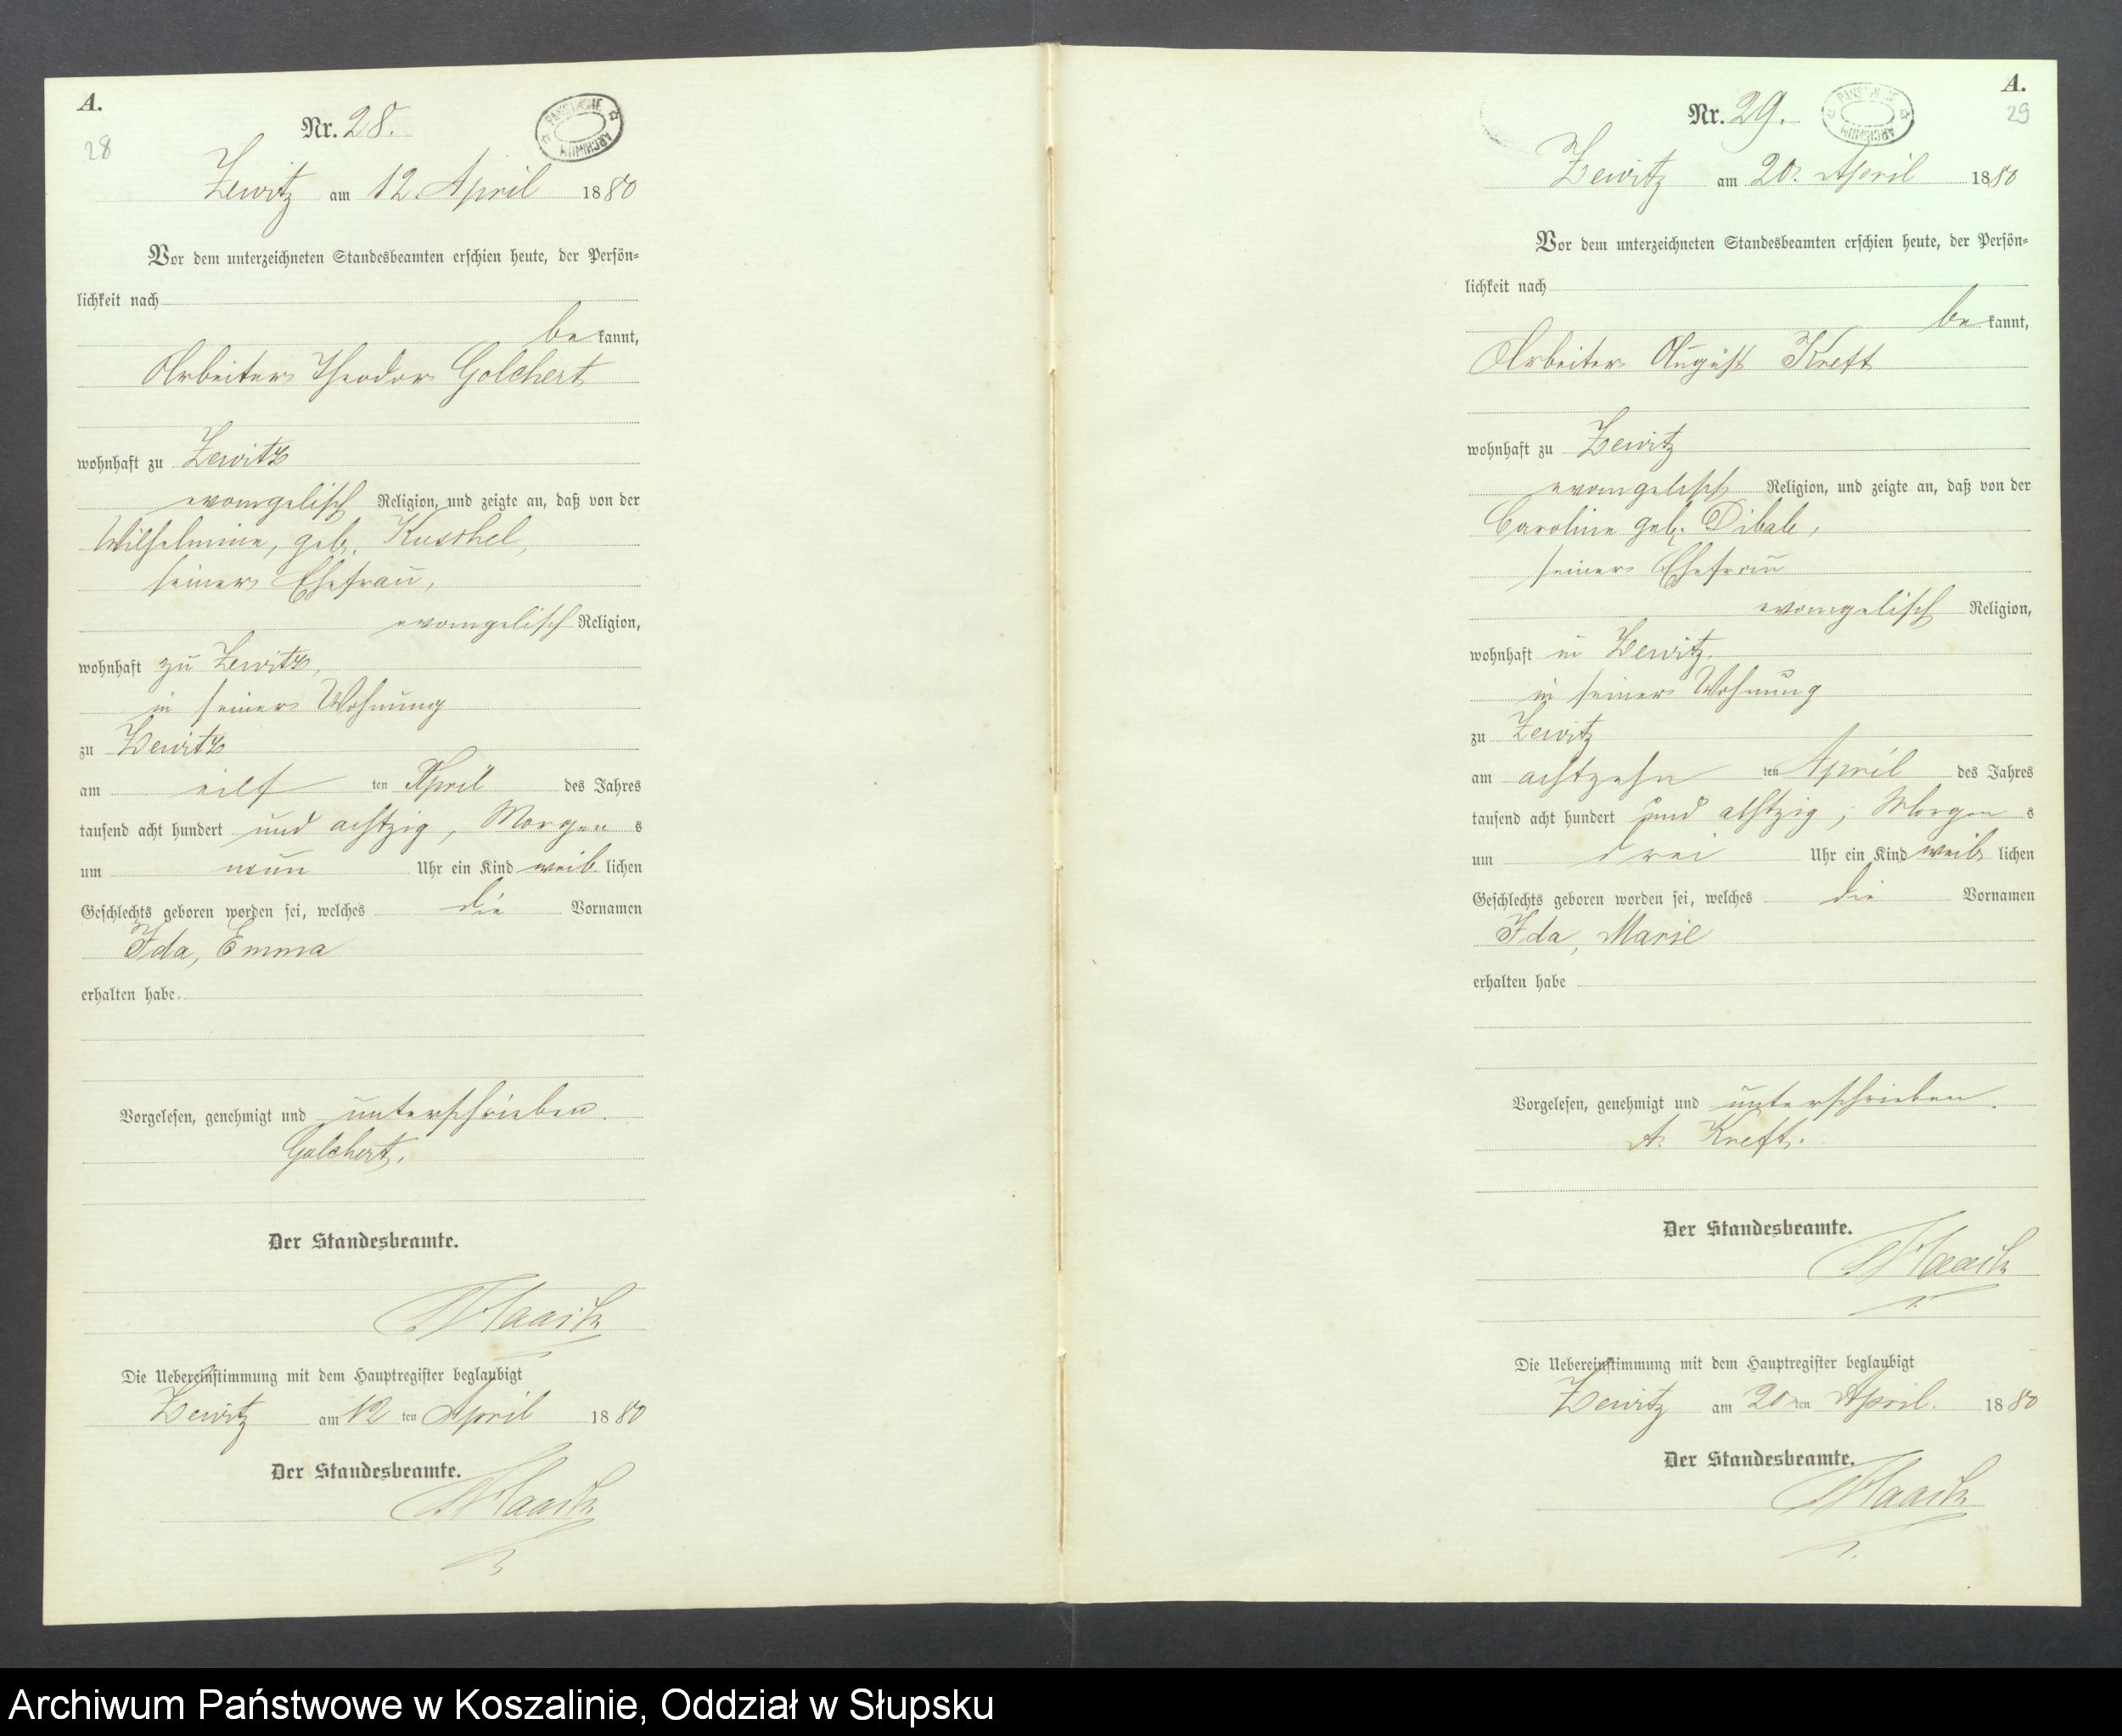 A.
28
Nr. 28.
PAŃSTWOWE ARCHIWUM
Zewitz am 12. April 1880
Vor dem unterzeichneten Standesbeamten erschien heute, der Persön-
lichkeit nach
be kannt,
Arbeiter Theodor Golchert
wohnhaft zu Zewitz
evangelisch Religion, und zeigte an, daß von der
Wilhelmine, geb. Kuschel,
seiner Ehefrau,
evangelisch Religion,
wohnhaft zu Zewitz,
in seiner Wohnung
zu Zewitz
am eilf ten April des Jahres
tausend acht hundert und achtzig, Morgen s
um neun Uhr ein Kind weib lichen
Geschlechts geboren worden sei, welches die Vornamen
Ida, Emma
erhalten habe.
Vorgelesen, genehmigt und unterschrieben.
Golchert.
Der Standesbeamte.
Die Uebereinstimmung mit dem Hauptregister beglaubigt
Zewitz am 12 ten April 1880
Der Standesbeamte.
A.
29
Nr. 29.
PAŃSTWOWE ARCHIWUM
Zewitz am 20. April 1880
Vor dem unterzeichneten Standesbeamten erschien heute, der Persön-
lichkeit nach
be kannt,
Arbeiter August Kreft
wohnhaft zu Zewitz
evangelisch Religion, und zeigte an, daß von der
Caroline geb. Dibale,
seiner Ehefrau
evangelisch Religion,
wohnhaft in Zewitz.
in seiner Wohnung
zu Zewitz
am achtzehn ten April des Jahres
tausend acht hundert und achtzig, Morgen s
um drei Uhr ein Kind weib lichen
Geschlechts geboren worden sei, welches die Vornamen
Ida, Marie
erhalten habe
Vorgelesen, genehmigt und unterschrieben.
A. Kreft.
Der Standesbeamte.
Die Uebereinstimmung mit dem Hauptregister beglaubigt
Zewitz am 20 ten April. 1880
Der Standesbeamte.
Archiwum Państwowe w Koszalinie, Oddział w Słupsku